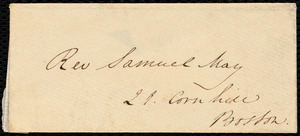 Rev Samuel May
21. Cornhill
Boston.